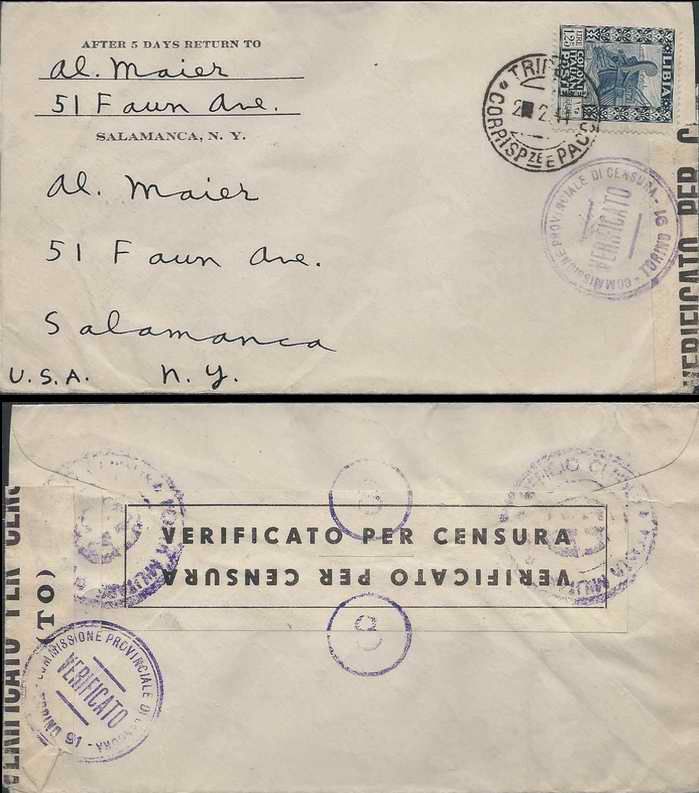 AFTER 5 DAYS RETURN TO
Al. Maier
51 Faun Ave.
SALAMANCA, N. Y.
LIBIA
COLONIE
ITALIANE
POSTE
LIRE
1,25
CORRISP.ZE E PACCHI
2
COMMISSIONE PROVINCIALE DI CENSURA - 16 TORINO
VERIFICATO
VERIFICATO PER C
Al. Maier
51 Faun Ave.
Salamanca
U.S.A. N.Y.
VERIFICATO PER CENSURA
VERIFICATO PER CENSURA
VERIFICATO PER CENS
(TO)
COMMISSIONE PROVINCIALE DI CENSURA - 16 TORINO
VERIFICATO